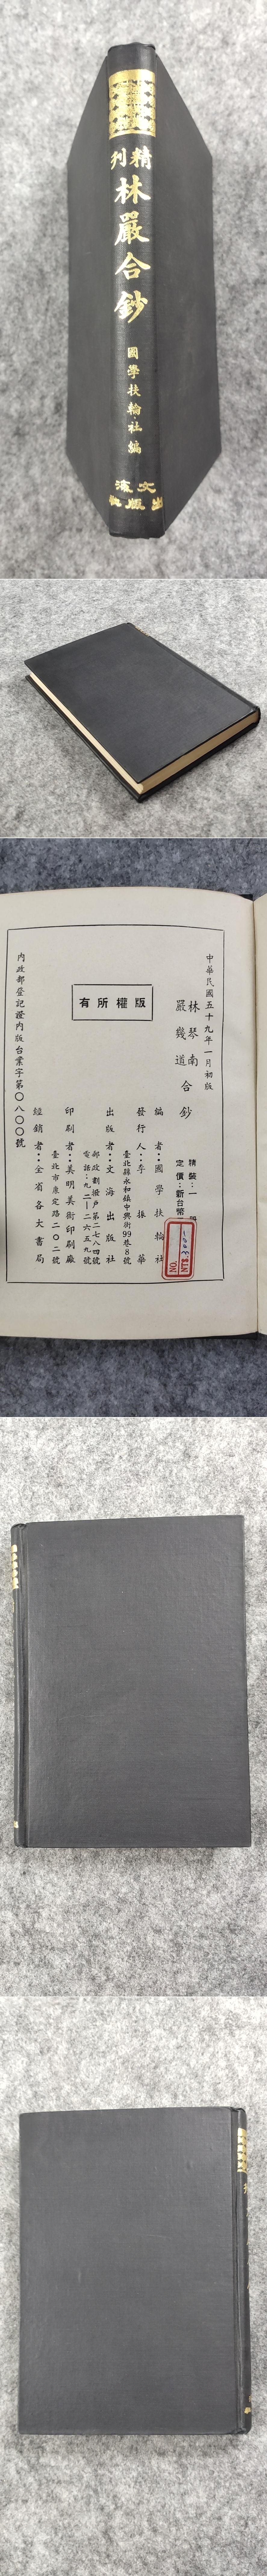 精刊
林嚴合鈔
國學扶輪社編
文海
出版社
中華民國五十九年一月初版
林琴南
嚴幾道
合鈔
精裝：一
定價：新台幣
NTS
NO.
編者：國學扶輪社
發行人：李振華
臺北縣永和鎮中興街99巷8號
出版者：文海出版社
郵政劃撥戶第二七八四號
電話：九二一二六五九號
印刷者：美明美術印刷廠
臺北市康定路二〇二號
經銷者：全省各大書局
版權所有
內政部登記證內版台業字第〇八〇〇號